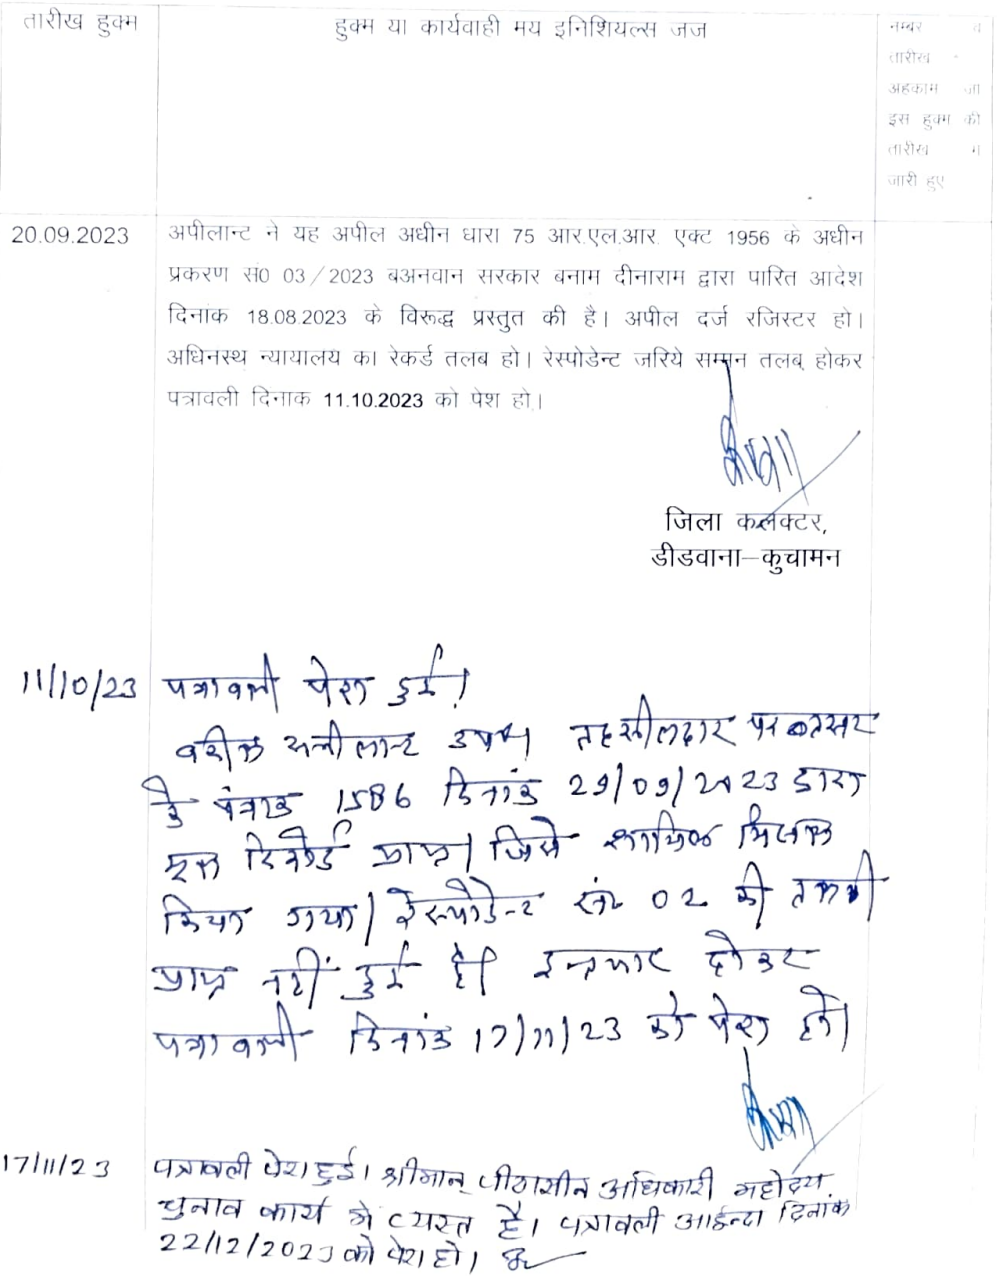 तारीख हुक्म
हुक्म या कार्यवाही मय इनिशियल्स जज
नम्बर व
तारीख
अहकाम जा
इस हुक्म की
तारीख म
जारी हुए
20.09.2023
अपीलान्ट ने यह अपील अधीन धारा 75 आर.एल.आर. एक्ट 1956 के अधीन
प्रकरण सं0 03/2023 बअनवान सरकार बनाम दीनाराम द्वारा पारित आदेश
दिनांक 18.08.2023 के विरूद्ध प्रस्तुत की है। अपील दर्ज रजिस्टर हो।
अधिनस्थ न्यायालय का रेकर्ड तलब हो। रेस्पोडेन्ट जरिये सम्मन तलब होकर
पत्रावली दिनाक 11.10.2023 को पेश हो।
जिला कलक्टर,
डीडवाना–कुचामन
11/10/23 पत्रावली पेश हुई।
वकील अपीलान्ट उप0। तहसीलदार परबतसर
के पत्रांक 1586 दिनांक 29/09/2023 द्वारा
मूल रिकॉर्ड प्राप्त। जिसे शामिल मिसल
किया गया। रेस्पोडेन्ट सं0 02 की तलबी
प्राप्त नहीं हुई है। इन्तजार होकर
पत्रावली दिनांक 17/11/23 को पेश हो।
17/11/23 पत्रावली पेश हुई। श्रीमान् पीठासीन अधिकारी महोदय
चुनाव कार्य मे व्यस्त है। पत्रावली आईन्दा दिनांक
22/12/2023 को पेश हो।